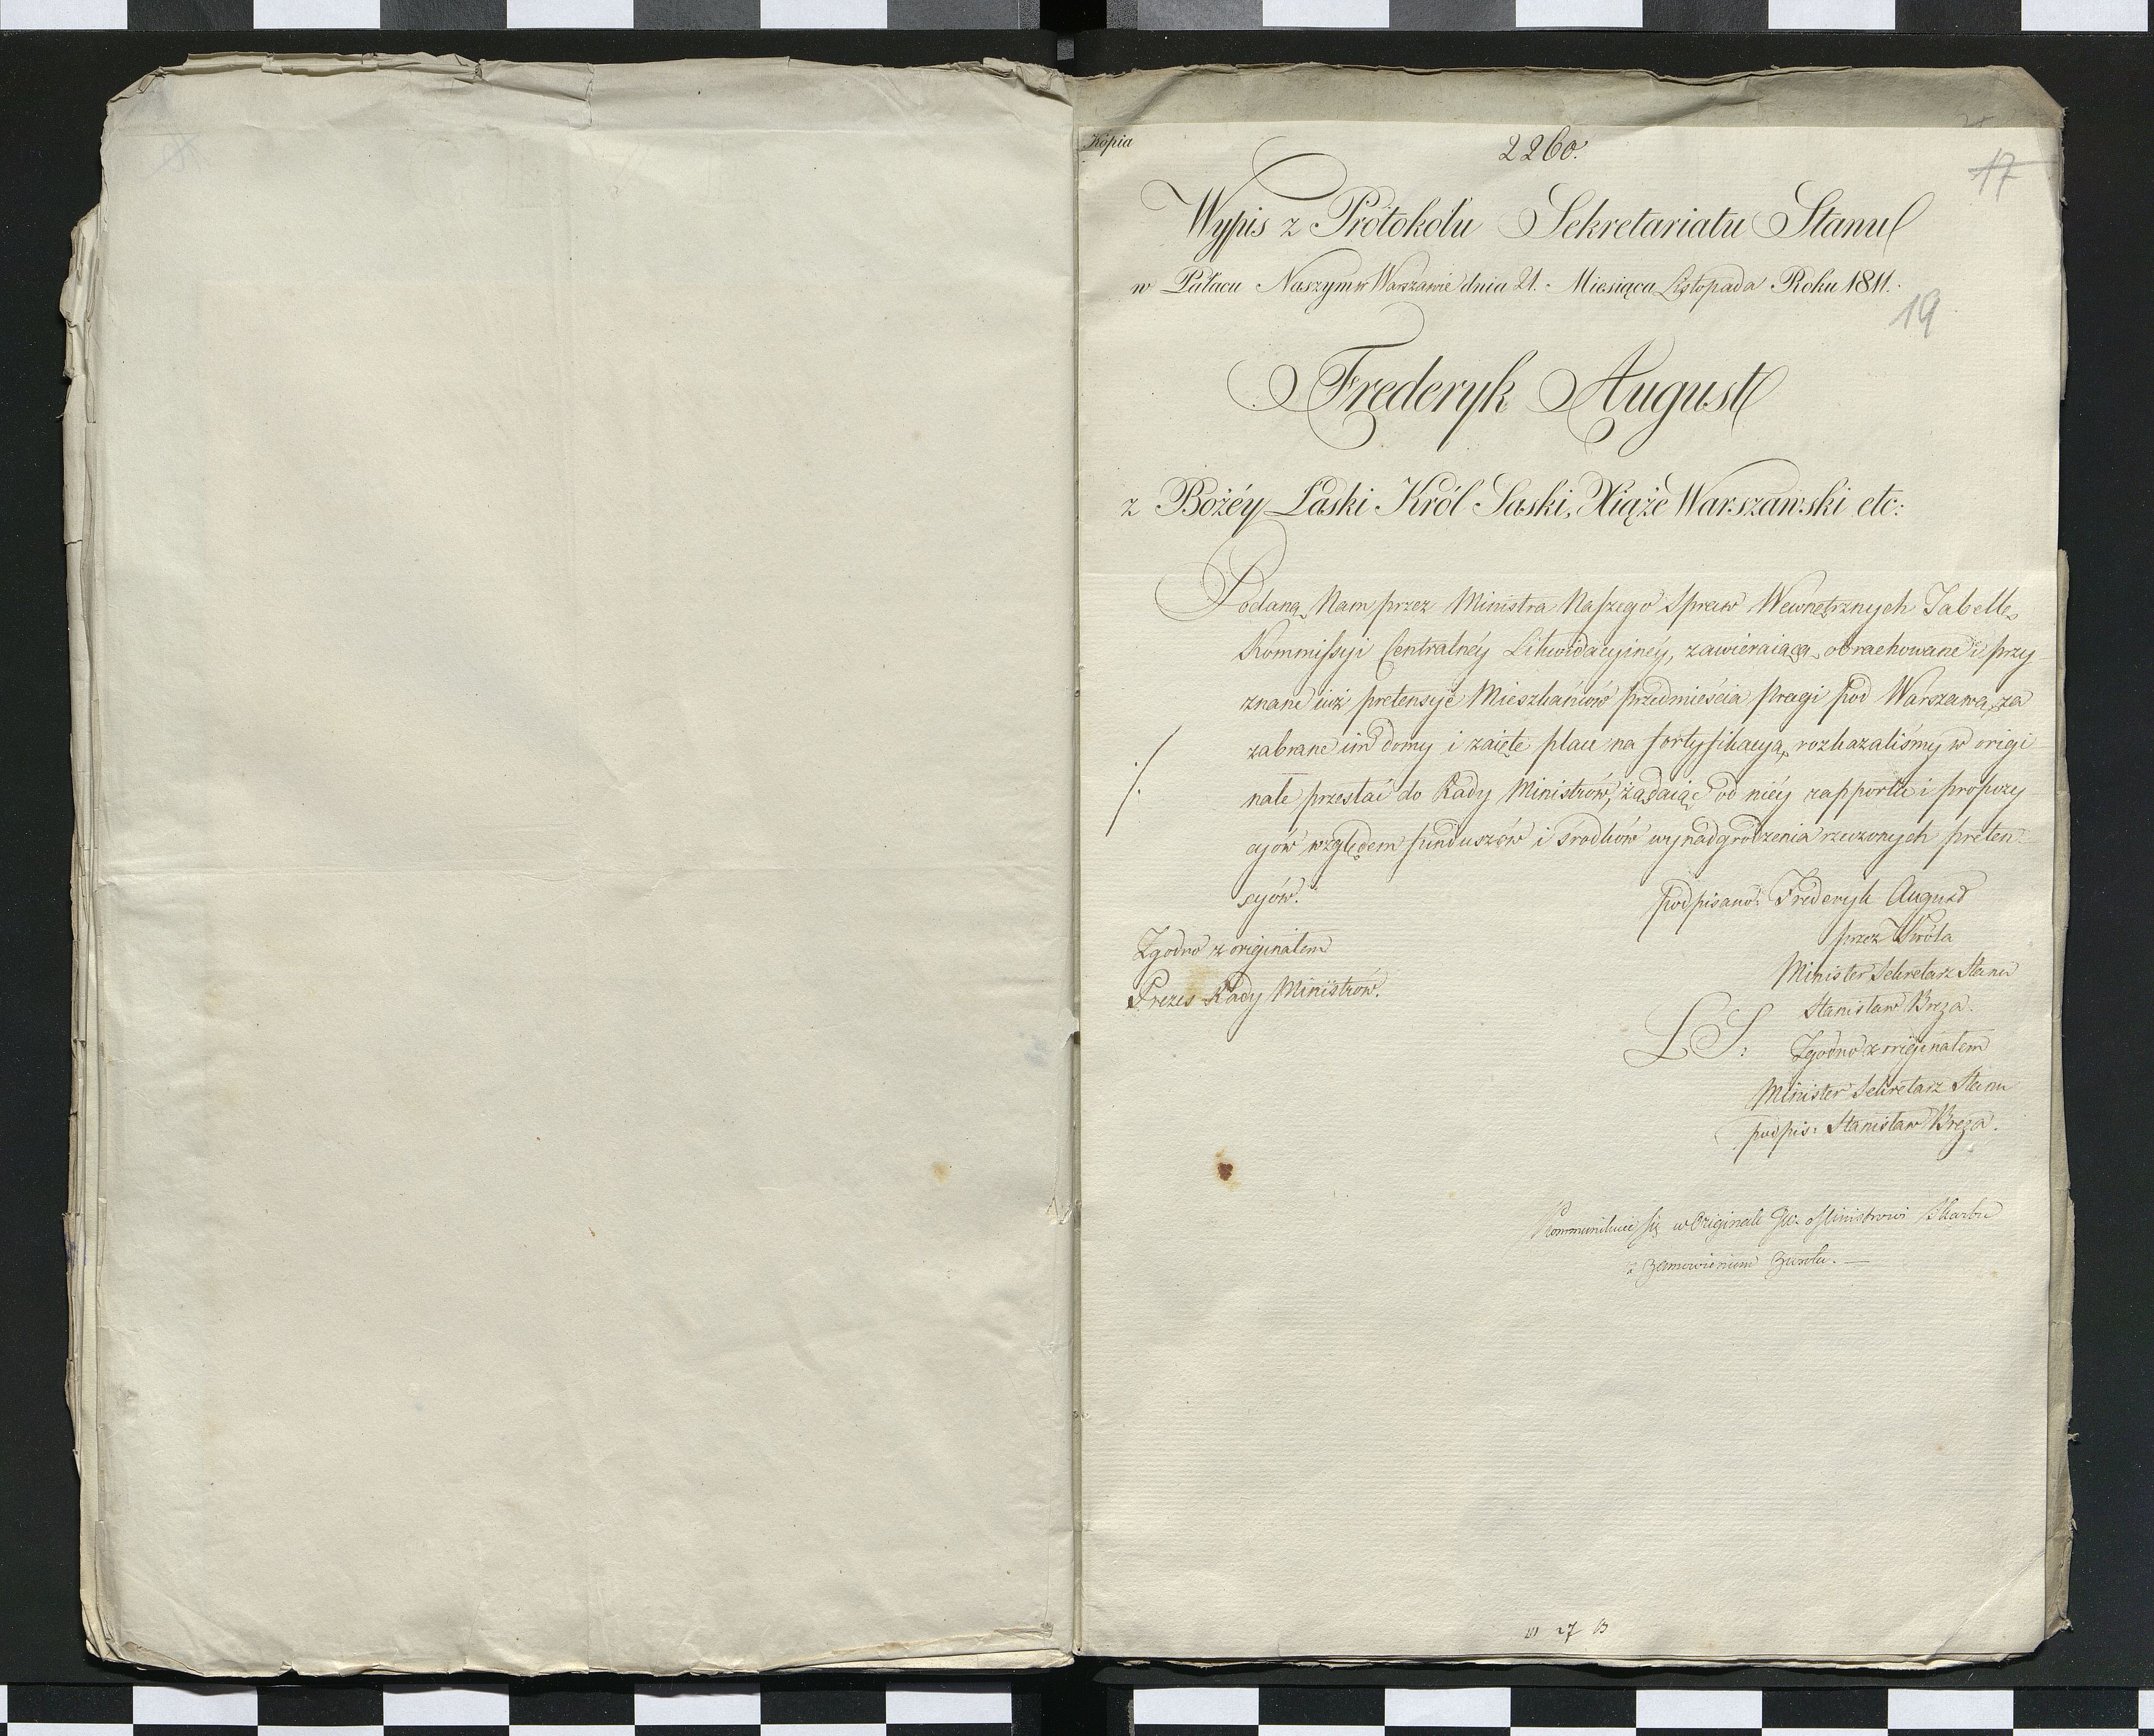 Kopia
2260.
17
Wypis z Protokołu Sekretariatu Stanu
w Pałacu Naszym w Warszawie dnia 21. Miesiąca Listopada Roku 1811.
19
Frederyk August
z Bożéy Łaski Król Saski, Xiąże Warszawski etc:
Podaną Nam przez Ministra Naszego Spraw Wewnętrznych Tabellę
Kommissyi Centralnéy Likwidacyinéy, zawieraiącą obrachowane i przy-
znane iuż pretensye Mieszkańców przedmieścia Pragi pod Warszawą, za
zabrane im domy i zaięte place na fortyfikacyą, rozkazaliśmy w origi-
nale przesłać do Rady Ministrów, żądaiąc od niéy rapportu i propozy-
cyów względem funduszów i środków wynadgrodzenia rzeczonych preten-
syów.
podpisano: Frederyk August
przez Króla
Minister Sekretarz Stanu
Stanisław Breza.
Zgodno z originałem
Prezes Rady Ministrów.
L S:
Zgodno z originałem
Minister Sekretarz Stanu
podpis: Stanisław Breza.
Kommunikuie się w Originale JW. Ministrowi Skarbu
z zamowieniem zwrotu. —
27